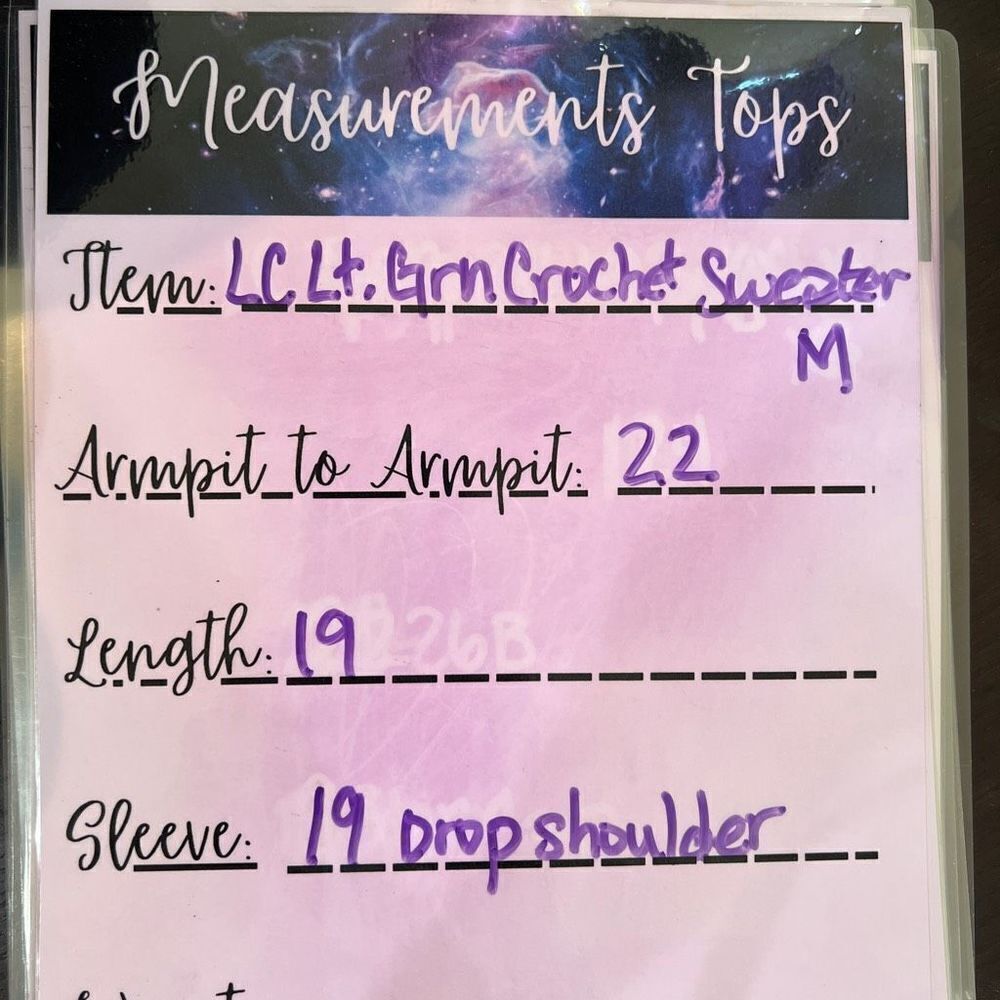 Measurements Tops
Item: LC Lt. Grn Crochet Sweater
M
Armpit to Armpit: 22
Length: 19
Sleeve: 19 Drop shoulder